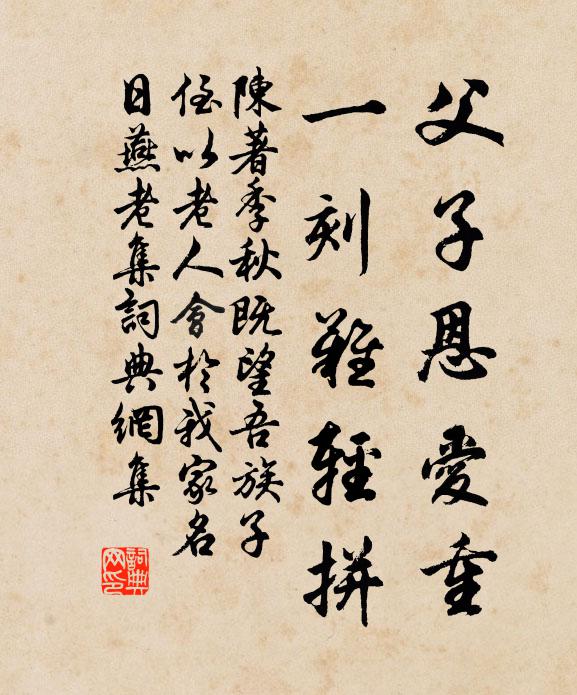 父子恩愛重
一刻難輕拼
陳著季秋既望吾族子
侄以老人會於我家名
日燕老集詞典網集
詞典网印